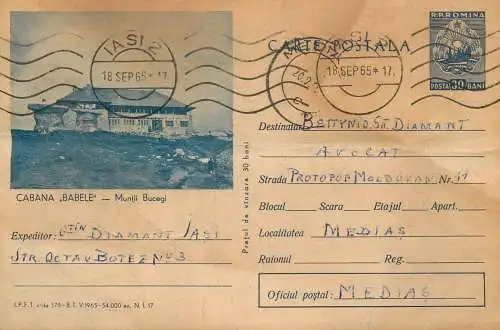 IAȘI 2
18 SEP 65 * 17.
CABANA „BABELE" — Munții Bucegi
Expeditor: DIAMANT IAȘI
STR. OCTAV BOTEZ No 3
I.P.F.T. c-da 579 - B.T. V/1965 - 54.000 ex. N.I. 17
Prețul de vînzare 30 bani
CARTE POSTALA
IAȘI 2
18 SEP 65 * 17.
R.P. ROMINA
POSTA 30 BANI
Destinatar ST. DIAMANT
AVOCAT
Strada PROTOPOP MOLDOVAN Nr. 11
Blocul Scara Etajul Apart.
Localitatea MEDIAȘ
Raionul Reg.
Oficiul poștal: MEDIAȘ